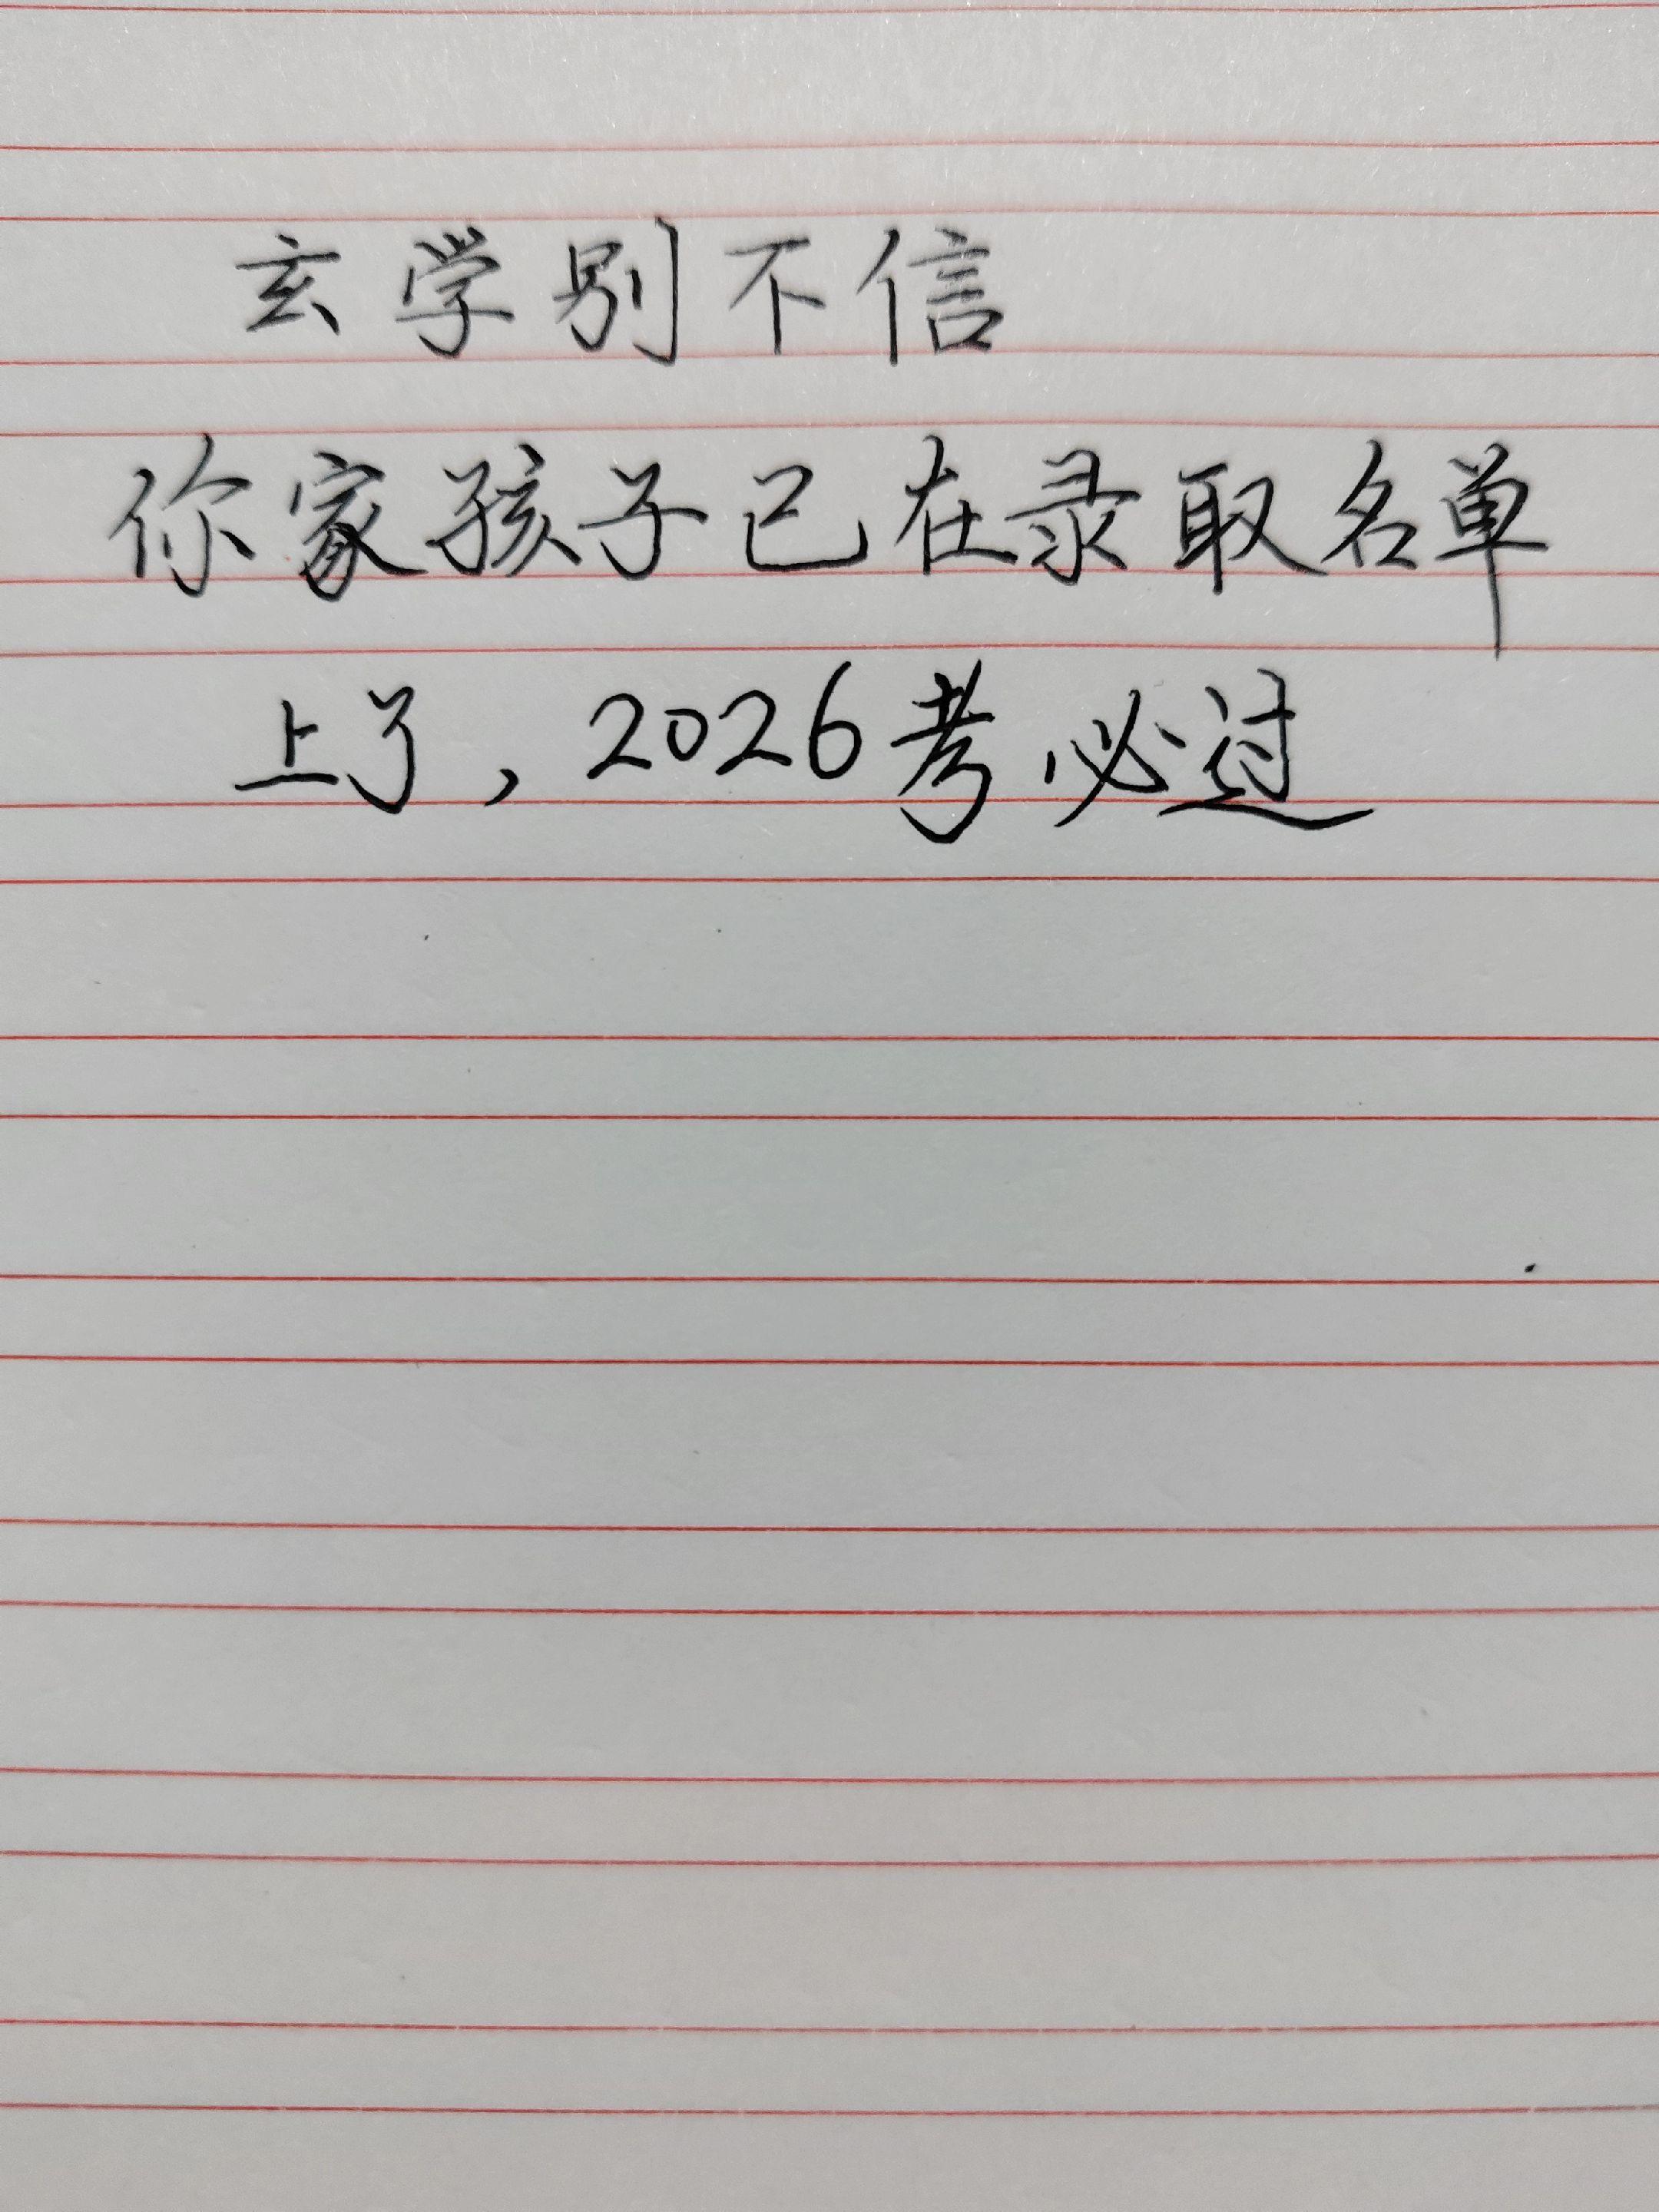 玄学别不信
你家孩子已在录取名单
上了，2026考必过